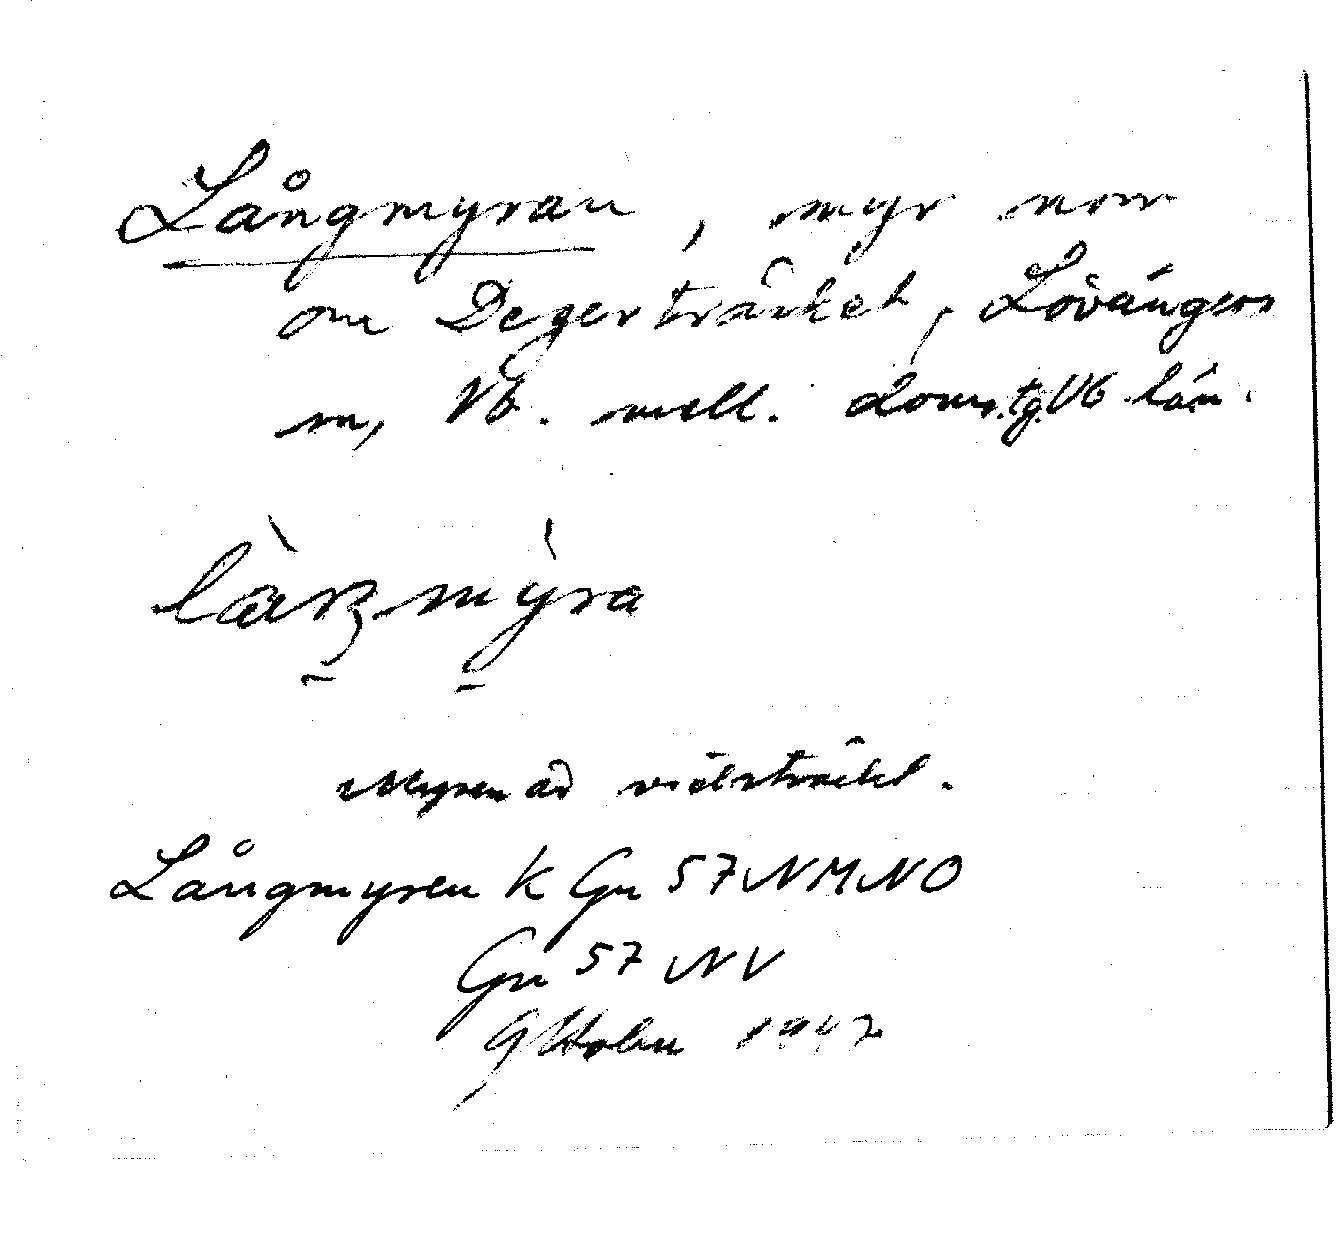 Långmyran, myr norr
om Degerträsket, Lövångers
sn, Vb. mell. doms.tg. Vb län.
Myren är vidsträckt.
Långmyren K Gn 57 NM NO
Gn 57 NV
Oktober 1947